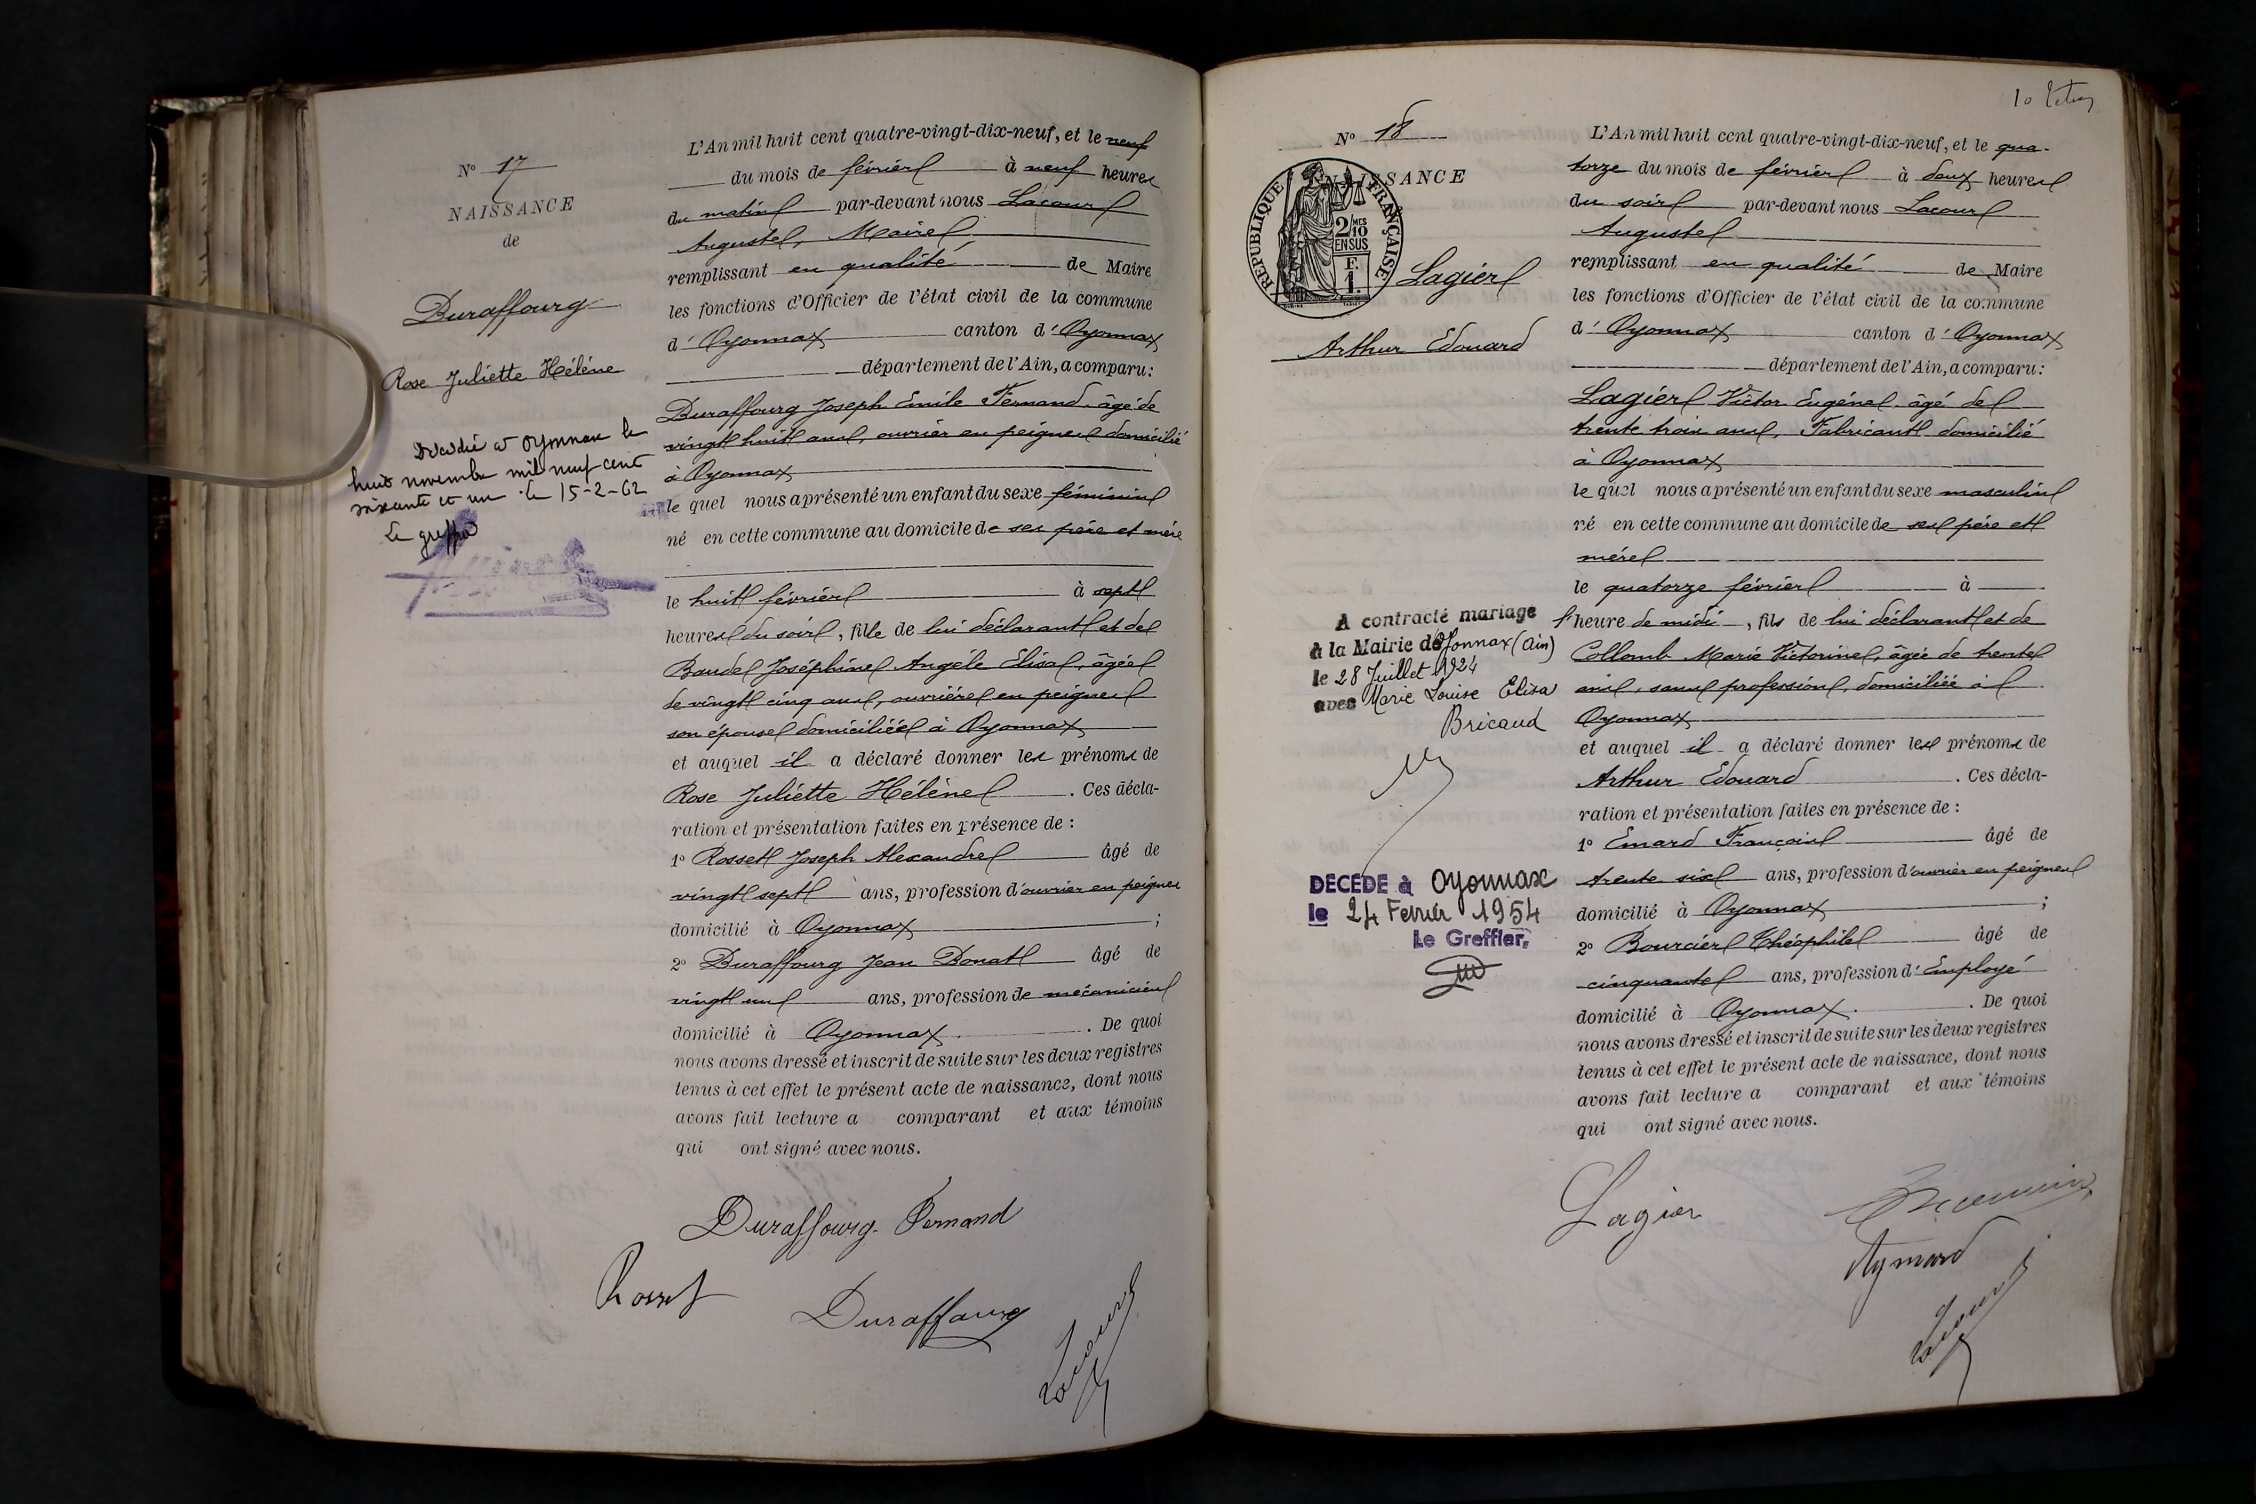 N° 17
NAISSANCE
de
Duraffourg
Rose Juliette Hélène
Décédée à Oyonnax le
huit novembre mil neuf cent
soixante et un le 15-2-62
Le greffier
L'An mil huit cent quatre-vingt-dix-neuf, et le neuf
du mois de février à neuf heures
du matin par-devant nous Lacour
Auguste, Maire
remplissant en qualité de Maire
les fonctions d'Officier de l'état civil de la commune
d'Oyonnax canton d'Oyonnax
département de l'Ain, a comparu:
Duraffourg Joseph Emile Fernand âgé de
vingt huit ans, ouvrier en peignes domicilié
à Oyonnax
le quel nous a présenté un enfant du sexe féminin
né en cette commune au domicile de ses père et mère
le huit février à sept
heures du soir, fille de lui déclarant et de
Baude Joséphine Angèle Elisa, âgée
de vingt cinq ans, ouvrière en peignes
son épouse domiciliée à Oyonnax
et auquel il a déclaré donner les prénoms de
Rose Juliette Hélène. Ces décla-
ration et présentation faites en présence de:
1° Rosset Joseph Alexandre âgé de
vingt sept ans, profession d'ouvrier en peignes
domicilié à Oyonnax;
2° Duraffourg Jean Donat âgé de
vingt un ans, profession de mécanicien
domicilié à Oyonnax. De quoi
nous avons dressé et inscrit de suite sur les deux registres
tenus à cet effet le présent acte de naissance, dont nous
avons fait lecture a comparant et aux témoins
qui ont signé avec nous.
Duraffourg Fernand
Rosset
Duraffourg
Lacour
N° 18
NAISSANCE
RÉPUBLIQUE FRANÇAISE
2/10 MES
EN SUS
F.
1.
Lagier
Arthur Edouard
A contracté mariage
à la Mairie de Oyonnax (Ain)
le 28 Juillet 1924
avec Marie Louise Elisa
Bricaud
DÉCÉDÉ à Oyonnax
le 24 Février 1954
Le Greffier,
L'An mil huit cent quatre-vingt-dix-neuf, et le qua-
torze du mois de février à deux heures
du soir par-devant nous Lacour
Auguste
remplissant en qualité de Maire
les fonctions d'Officier de l'état civil de la commune
d'Oyonnax canton d'Oyonnax
département de l'Ain, a comparu:
Lagier Victor Eugène âgé de
trente trois ans, Fabricant domicilié
à Oyonnax
le quel nous a présenté un enfant du sexe masculin
né en cette commune au domicile de ses père et
mère
le quatorze février à
l'heure de midi, fils de lui déclarant et de
Collomb Marie Victorine, âgée de trente
ans, sans profession, domiciliée à
Oyonnax
et auquel il a déclaré donner les prénoms de
Arthur Edouard. Ces décla-
ration et présentation faites en présence de:
1° Emard François âgé de
trente six ans, profession d'ouvrier en peignes
domicilié à Oyonnax;
2° Bourcier Théophile âgé de
cinquante ans, profession d'Employé
domicilié à Oyonnax. De quoi
nous avons dressé et inscrit de suite sur les deux registres
tenus à cet effet le présent acte de naissance, dont nous
avons fait lecture a comparant et aux témoins
qui ont signé avec nous.
Lagier
Aymard
Lacour